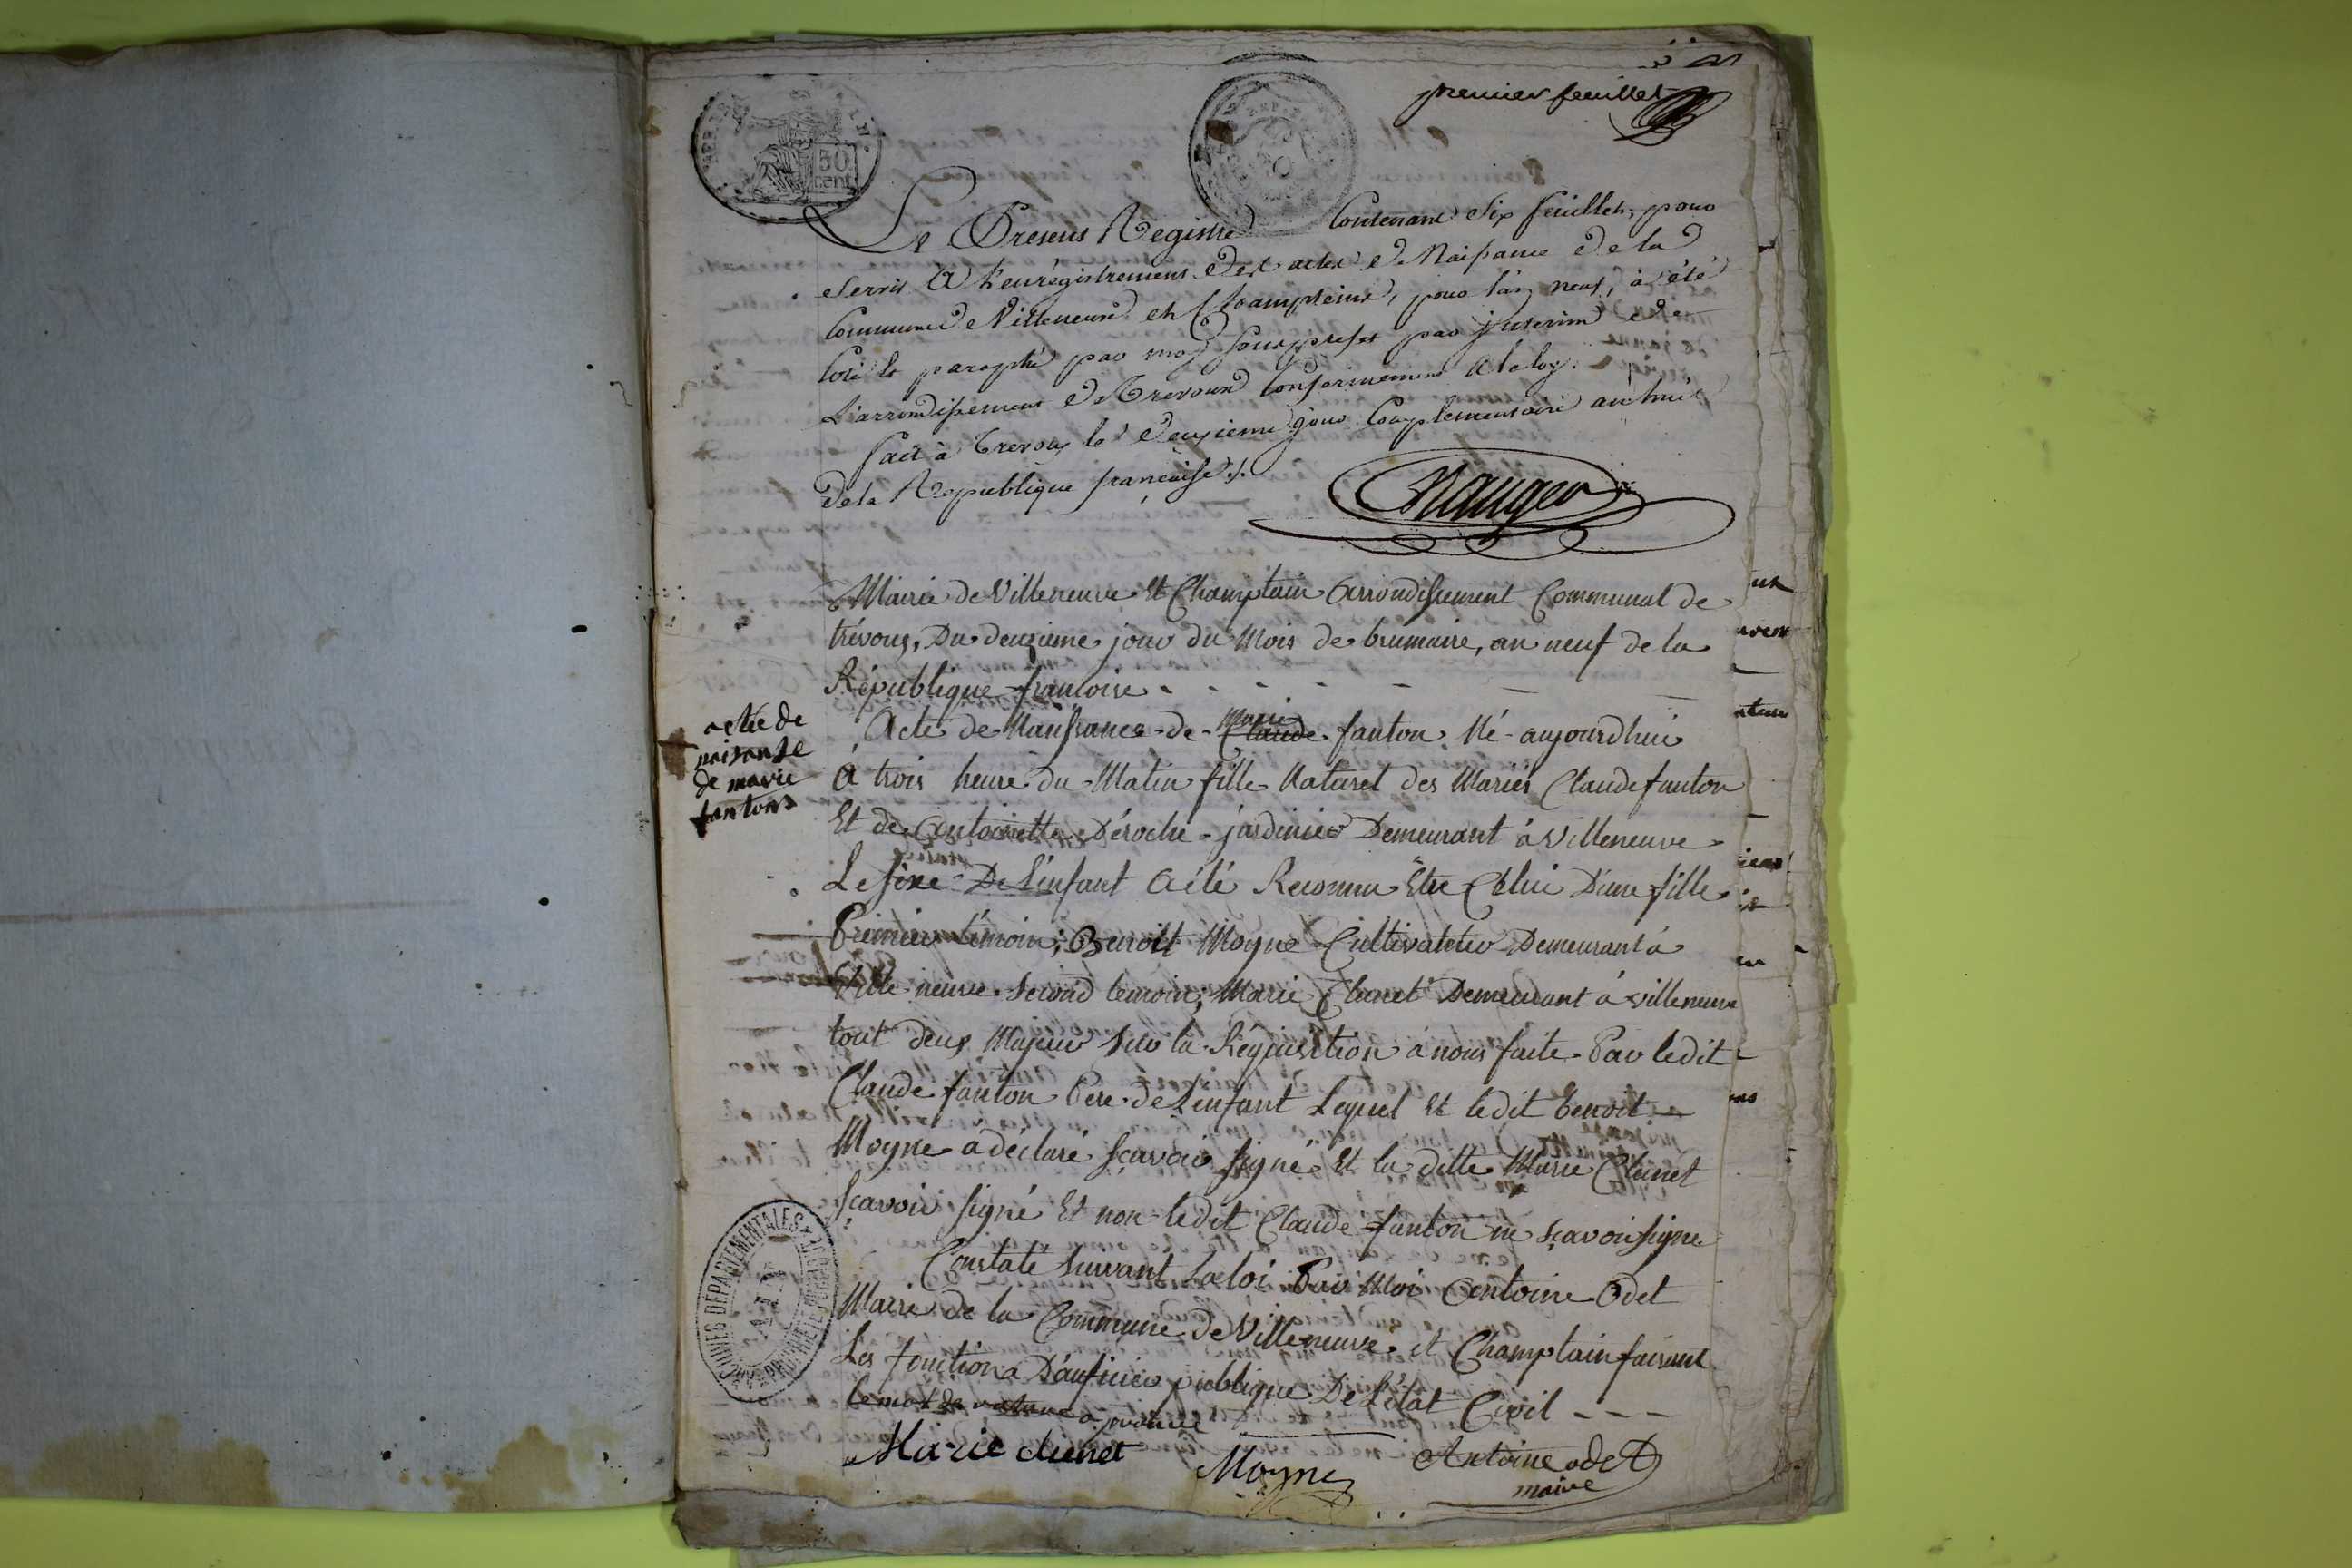 premier feuillet
50
cent
Le Present Registre Contenant Six feuillets, pour
servir a l'enrégistrement des actes de Naissance de la
Commune de Villeneuve et Champteins, pour l'an neuf, à été
Coté et paraphé par moy sous prefet par interim de
L'arrondissement de Trevoux Conformement a la loy.
fait à Trevoux le deuxieme jour Complementaire an huit
de la Republique française ./.
Nauger
Mairie de Villeneuve Et Champtain Arrondissement Communal de
trévoux, Du deuxieme jour du Mois de brumaire, an neuf de la
République francoise
acte de
naisanse
de marie
fanton
Acte de Naissance de Claude Marie fanton Né aujourdhui
A trois heure du Matin fille Naturel des Mariés Claude fanton
Et de Antoinette Déroche jardinier Demeurant à Villeneuve
Le sexe De L'enfant a été Reconnu Etre Celui D'une fille
Premier témoin; Benoit Moyne Cultivateur Demeurant à
Ville neuve Second temoin; Marie Clunet Demeurant à villeneuve
tout deux Majeur Sur la Réquisition à nous faite Par ledit
Claude fanton Pere de Lenfant Lequel Et ledit benoit
Moyne a déclaré sçavoir signé Et la ditte Marie Clunet
sçavoir signé Et non ledit Claude fanton ne sçavoir signe
Constaté Suivant La loi Par Moi Antoine Odet
Maire de la Commune de Villeneuve et Champtain faisant
Les fonction D'aufficier publique De L'état Civil
le mot de nature a prouvé
Marie clunet
Moyne
Antoine odet
maire
ARCHIVES DÉPARTEMENTALES
AIN
PROPRIÉTÉ PUBLIQUE